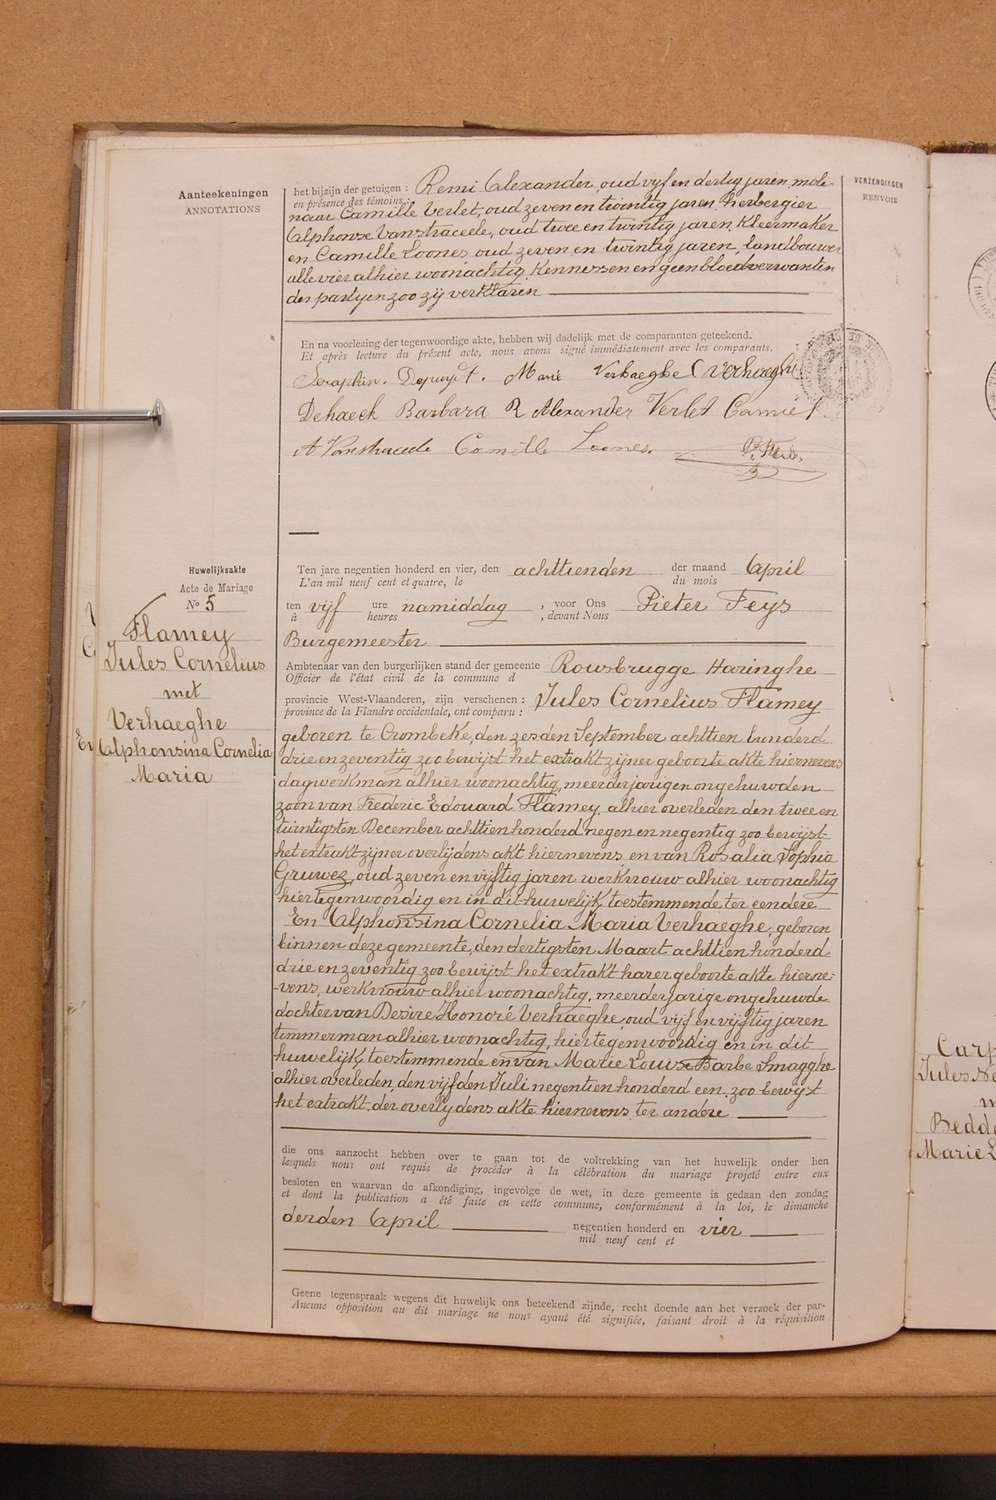 Aanteekeningen
ANNOTATIONS
VERZENDINGEN
RENVOIS
het bijzijn der getuigen : Remi Alexander, oud vijf en dertig jaren, mole-
en présence des témoins :
naar Camille Verlet, oud zeven en twintig jaren, herbergier
Alphonse Vanstraceele, oud twee en twintig jaren, Kleermaker
en Camille Loones, oud zeven en twintig jaren, landbouwer
alle vier alhier woonachtig, Kennissen en geen bloedverwanten
der partyen zoo zij verklaren
En na voorlezing der tegenwoordige akte, hebben wij dadelijk met de comparanten geteekend.
Et après lecture du présent acte, nous avons signé immédiatement avec les comparants.
Seraphin. Marie Verhaeghe C Verhaeghe
Dehaeck Barbara R Alexander Verlet Camiel
A Vanstraceele Camille Loones.
Huwelijksakte
Acte de Mariage
No 5
Flamey
Jules Cornelius
met
Verhaeghe
Alphonsina Cornelia
Maria
Ten jare negentien honderd en vier, den achttienden der maand April
L'an mil neuf cent et quatre, le du mois
ten vijf ure namiddag , voor Ons Pieter Feys
à heures , devant Nous
Burgemeester
Ambtenaar van den burgerlijken stand der gemeente Rousbrugge Haringhe
Officier de l'état civil de la commune d
provincie West-Vlaanderen, zijn verschenen : Jules Cornelius Flamey
province de la Flandre occidentale, ont comparu :
geboren te Crombeke, den zesden September achttien honderd
drie en zeventig zoo bewijst het extrakt zijner geboorte akte hiernevens
dagwerkman alhier woonachtig, meerderjarigen ongehuwden
zoon van Frederic Edouard Flamey, alhier overleden den twee en
twintigsten December achttien honderd negen en negentig zoo bewijst
het extrakt zijner overlijdens akt hiernevens en van Rosalia Sophia
Gruwez, oud zeven en vijftig jaren werkvrouw alhier woonachtig
hier tegenwoordig en in dit huwelijk toestemmende ter eendere
En Alphonsina Cornelia Maria Verhaeghe, geboren
binnen deze gemeente, den dertigsten Maart achttien honderd
drie en zeventig zoo bewijst het extrakt harer geboorte akte hierne-
-vens, werkvrouw alhier woonachtig, meerderjarige ongehuwde
dochter van Desire Honoré Verhaeghe, oud vijf en vijftig jaren
timmerman alhier woonachtig, hier tegenwoordig en in dit
huwelijk toestemmende en van Marie Louise Barbe Smagghe
alhier overleden, den vijfden Juli negentien honderd een. zoo bewijst
het extrakt der overlydens akte hiernevens ter andere
die ons aanzocht hebben over te gaan tot de voltrekking van het huwelijk onder hen
lesquels nous ont requis de procéder à la célébration du mariage projeté entre eux
besloten en waarvan de afkondiging, ingevolge de wet, in deze gemeente is gedaan den zondag
et dont la publication a été faite en cette commune, conformément à la loi, le dimanche
derden April negentien honderd en vier
mil neuf cent et
Geene tegenspraak wegens dit huwelijk ons beteekend zijnde, recht doende aan het verzoek der par-
Aucune opposition au dit mariage ne nous ayant été signifiée, faisant droit à la réquisition
Carp
Jules
Bedd
Marie L